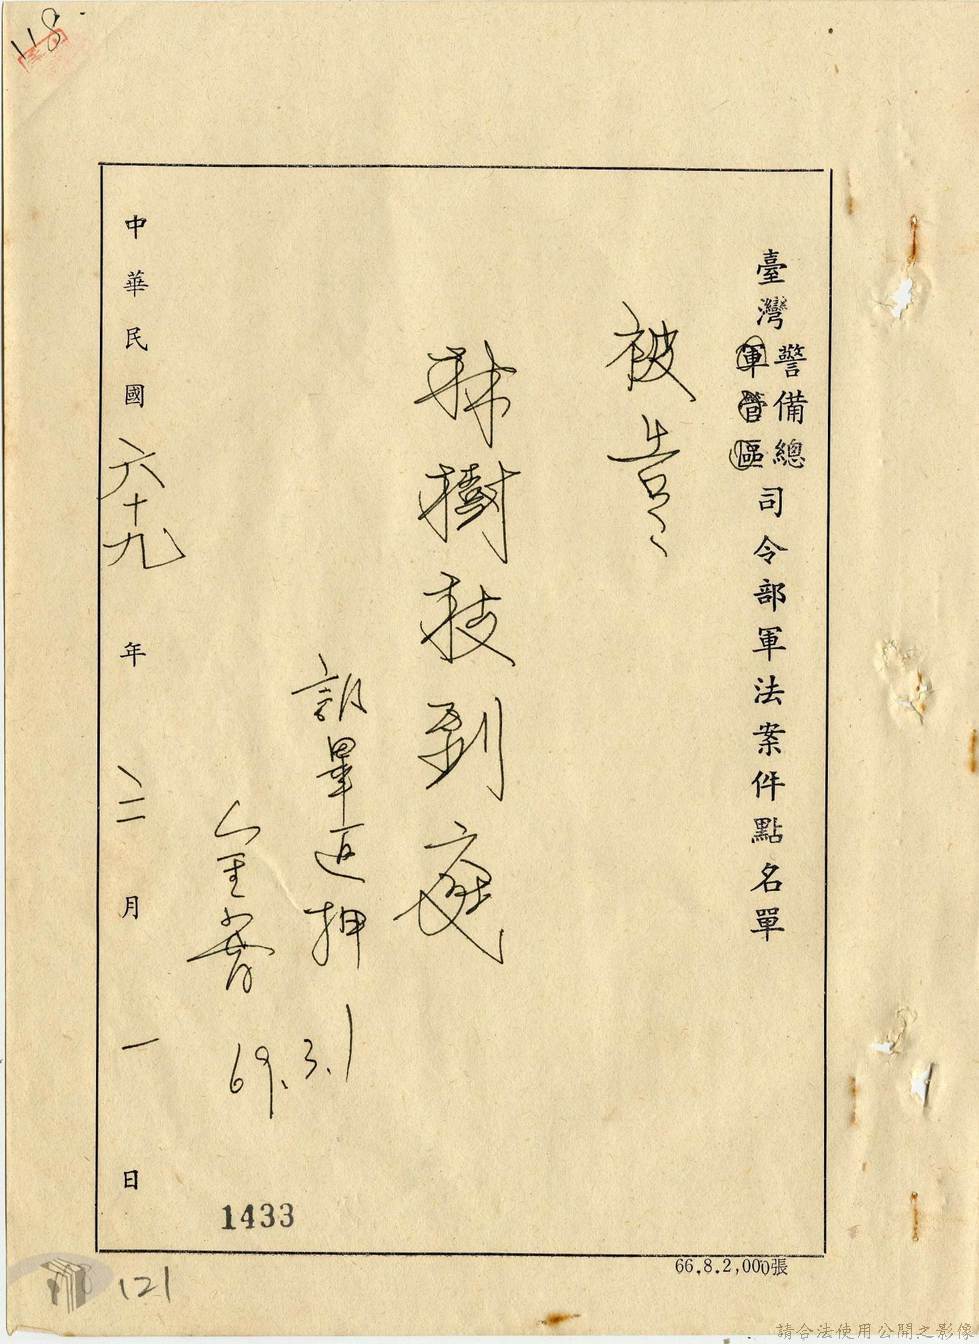 118
臺灣警備總軍管區司令部軍法案件點名單
被告
林樹枝到庭
訊畢還押
69.3.1
中華民國六十九年三月一日
1433
66.8.2,000張
121
請合法使用公開之影像